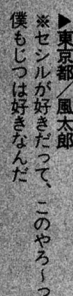 ▶東京都／風太郎
※セシルが好きだって、このやろ～っ
僕もじつは好きなんだ